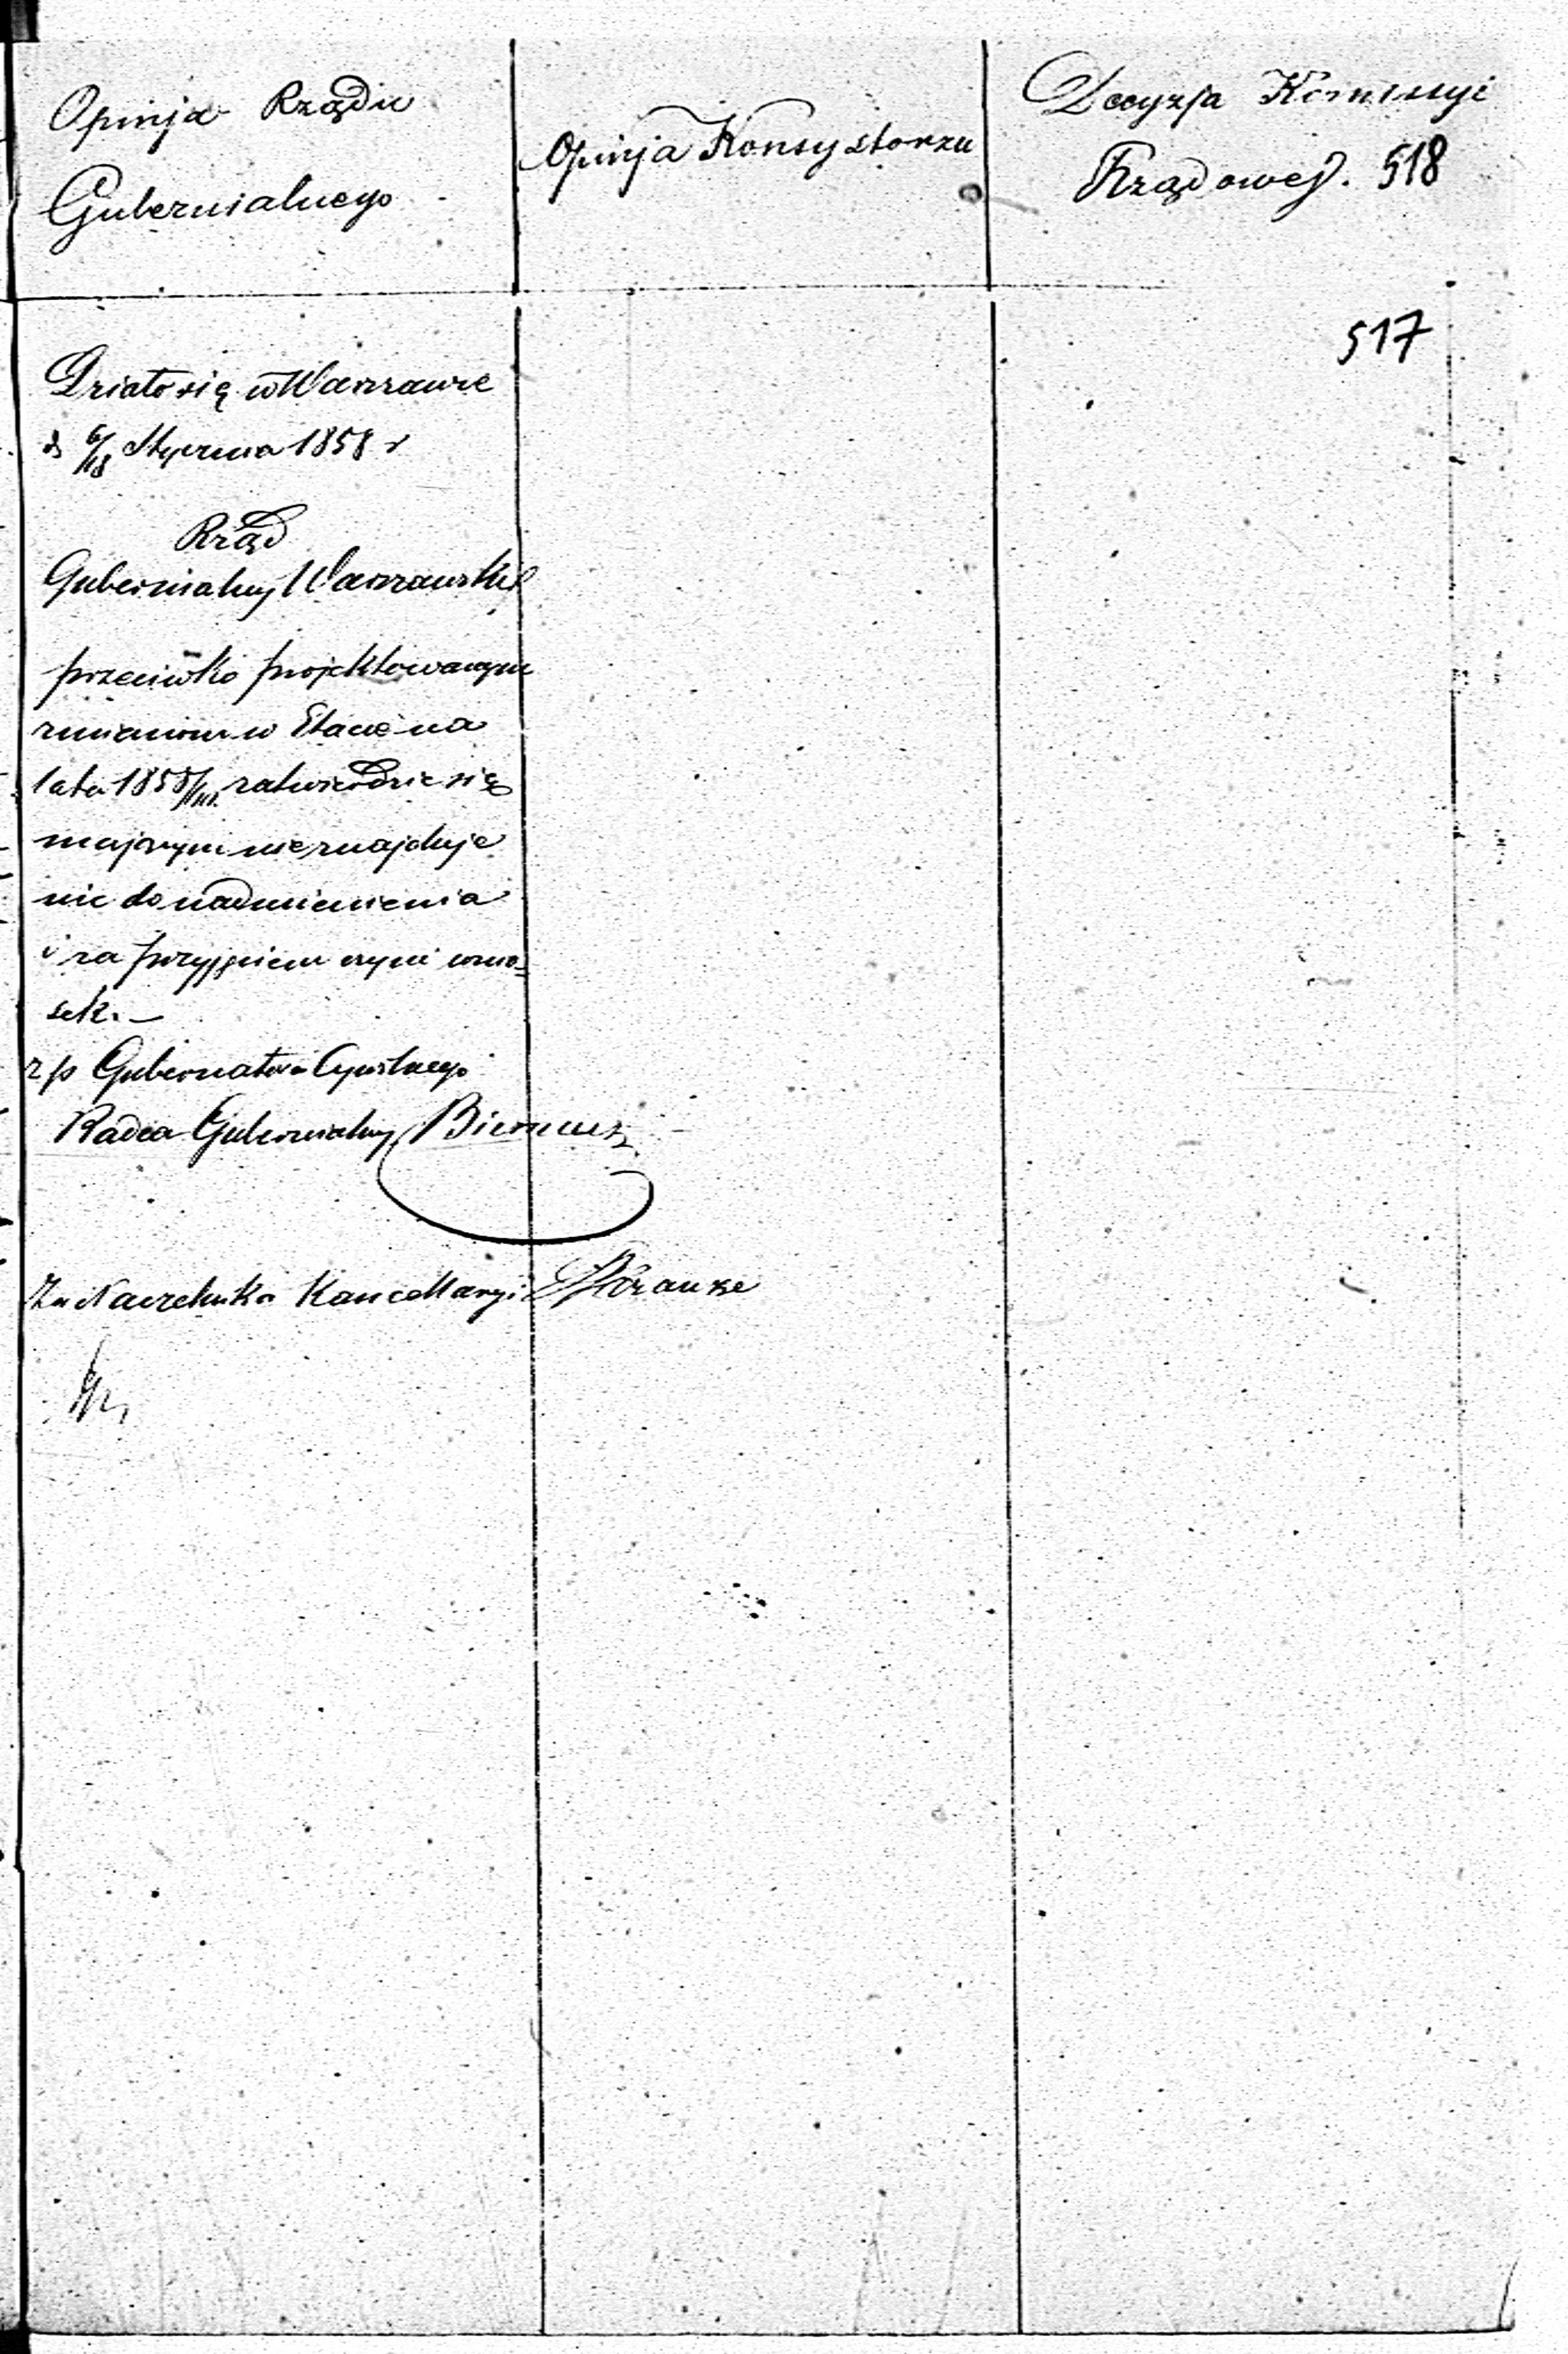 Opinja Rządu
Gubernialnego
Opinja Konsystorza
Decyzja Kommissyi
Rządowej. 518
517
Działo się w Warszawie
d 6/18 Stycznia 1858 r
Rząd
Gubernialny Warszawski
przeciwko projektowanym
zmianom w Etacie na
lata 1858/ zatwierdzić się
mającym nie znajduje
nic do nadmienienia
i za przyjęciem czyni wnio-
sek. —
z/p Gubernatora Cywilnego
Radca Gubernialny
Za Naczelnika Kancellaryi Krauze